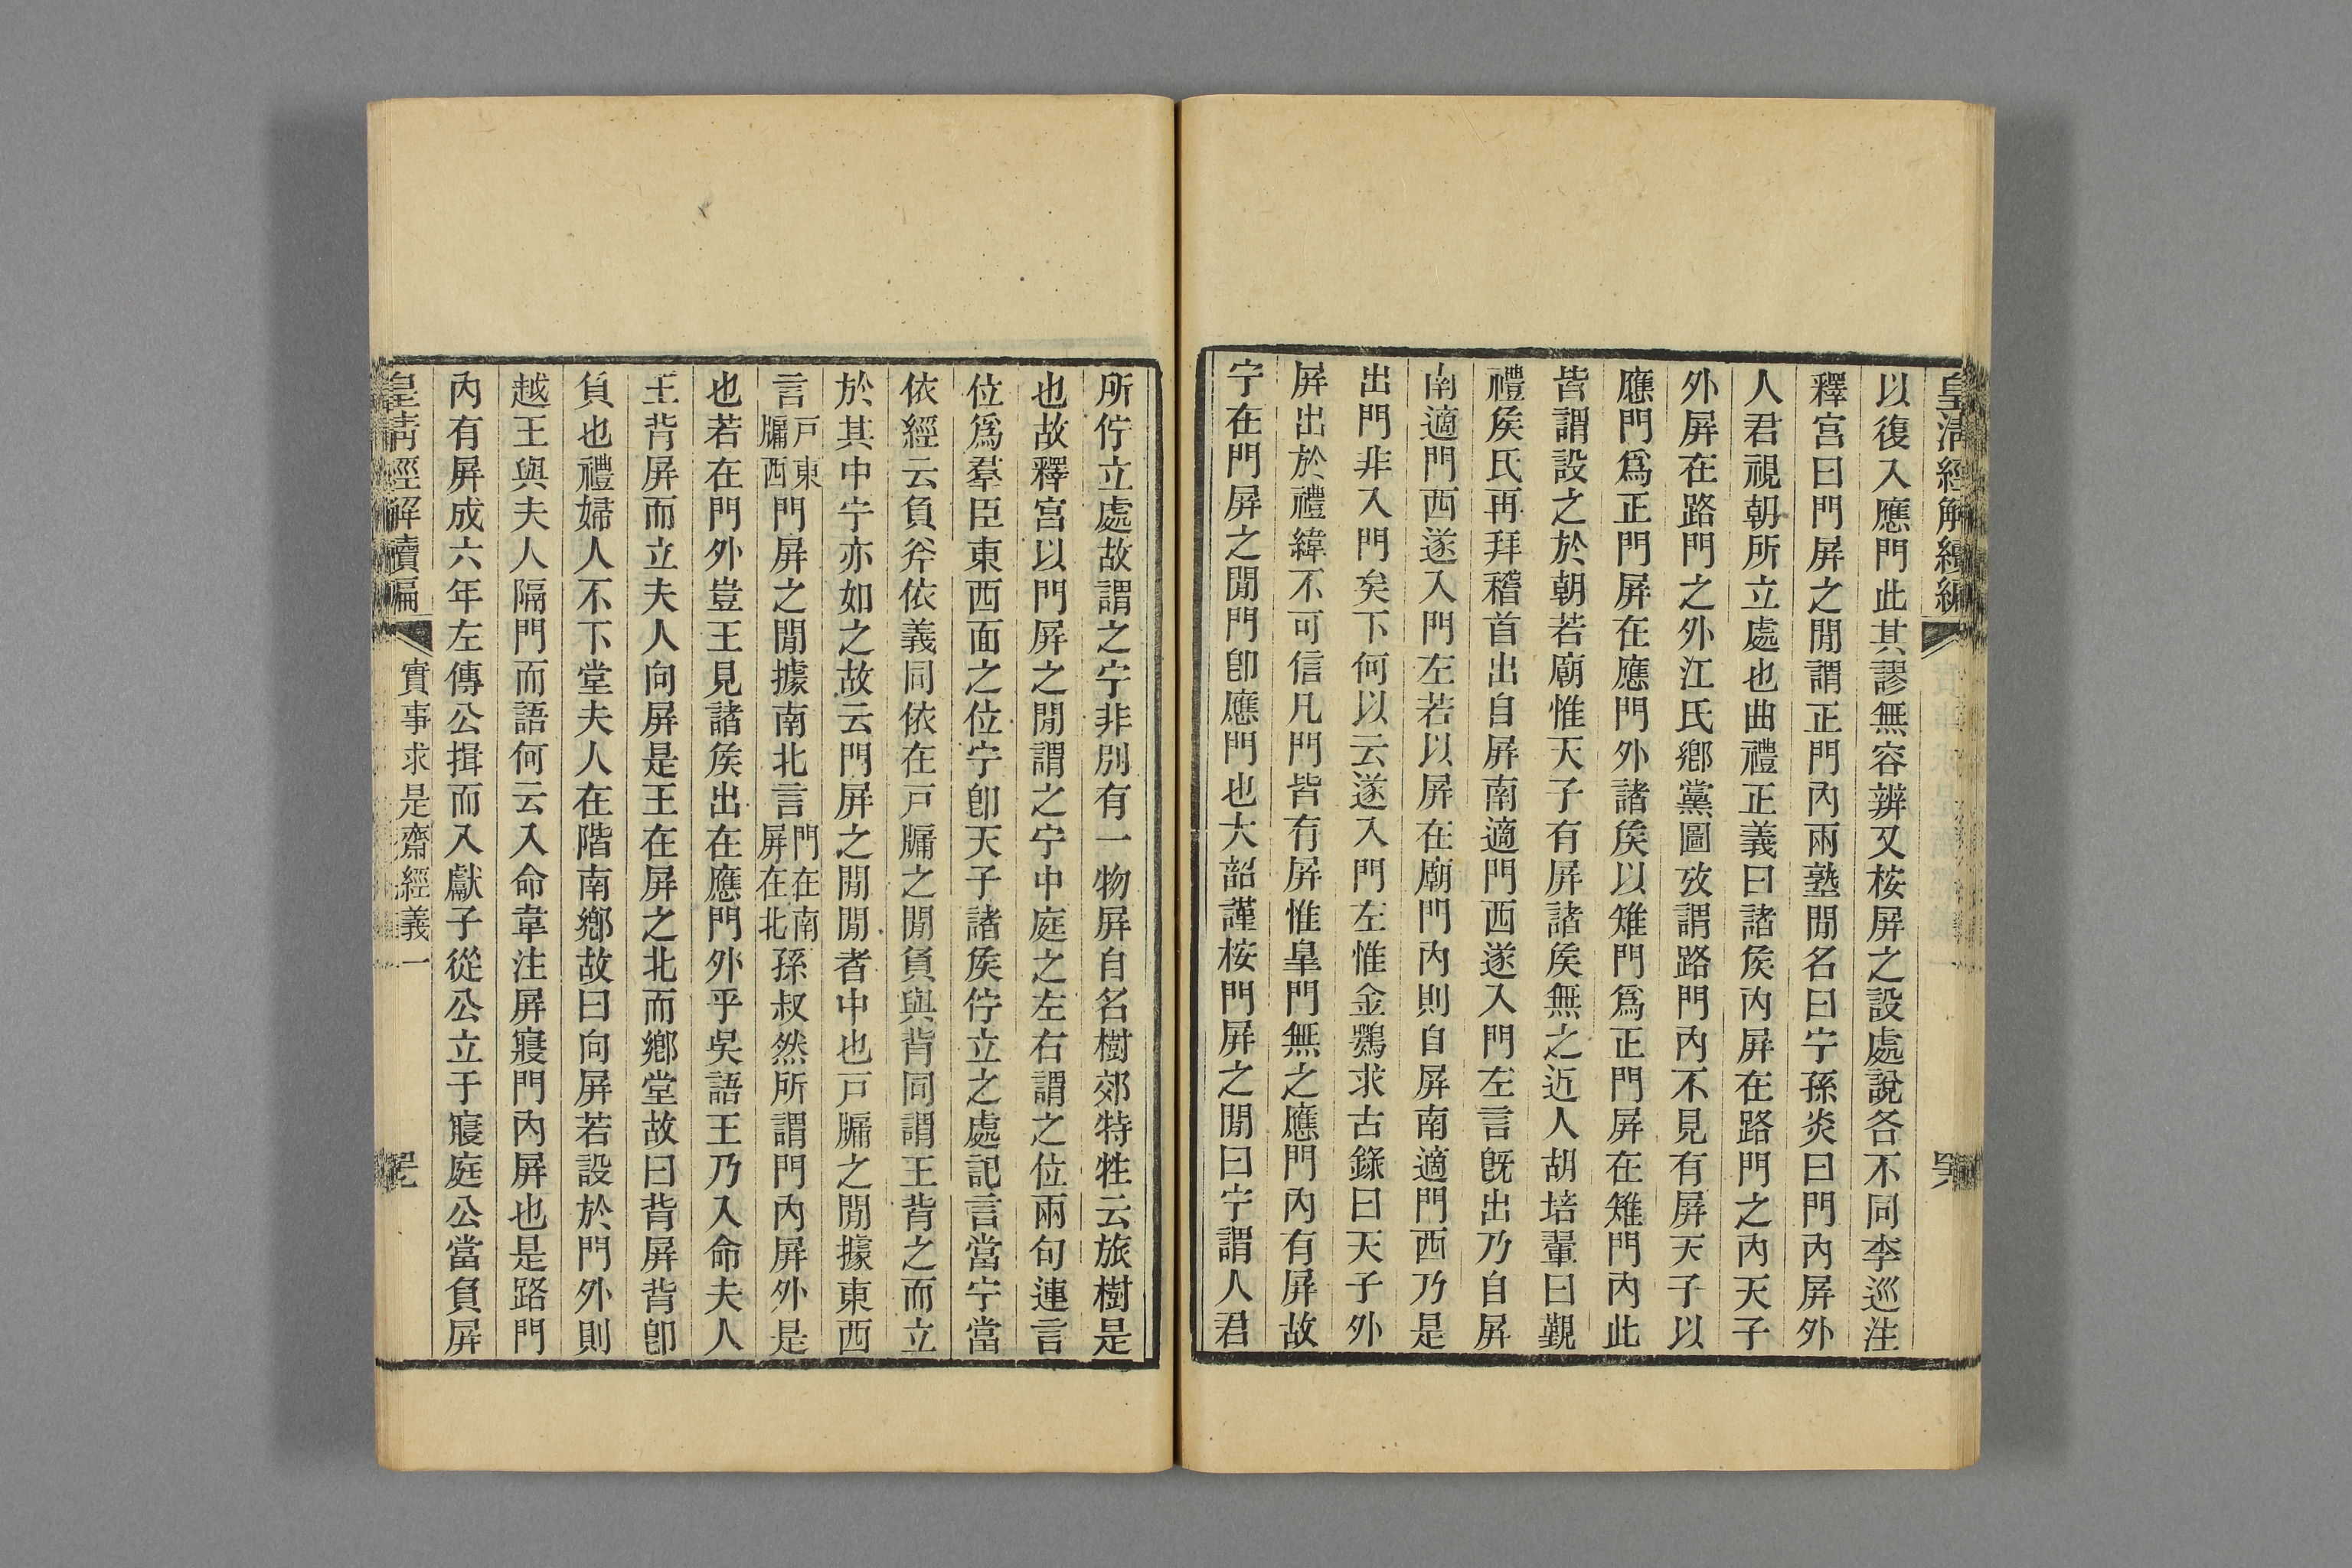 皇淸經解續編
以復入應門此其謬無容辨又桉屏之設處說各不同李巡注
釋宮曰門屏之閒謂正門內兩塾閒名曰宁孫炎曰門內屏外
人君視朝所立處也曲禮正義曰諸矦內屏在路門之內天子
外屏在路門之外江氏鄉黨圖攷謂路門內不見有屏天子以
應門爲正門屏在應門外諸矦以雉門爲正門屏在雉門內此
皆謂設之於朝若廟惟天子有屏諸矦無之近人胡培翬曰覲
禮矦氏再拜稽首出自屏南適門西遂入門左言旣出乃自屏
南適門西遂入門左若以屏在廟門內則自屏南適門西乃是
出門非入門矣下何以云遂入門左惟金鶚求古錄曰天子外
屏出於禮緯不可信凡門皆有屏惟皐門無之應門內有屏故
宁在門屏之閒門卽應門也大韶謹桉門屏之閒曰宁謂人君
所佇立處故謂之宁非別有一物屏自名樹郊特牲云旅樹是
也故釋宮以門屏之閒謂之宁中庭之左右謂之位兩句連言
位爲羣臣東西面之位宁卽天子諸矦佇立之處記言當宁當
依經云負斧依義同依在戸牖之閒負與背同謂王背之而立
於其中宁亦如之故云門屏之閒閒者中也戸牖之閒據東西
言戸東牖西門屏之閒據南北言門在南屏在北孫叔然所謂門內屏外是
也若在門外豈王見諸矦出在應門外乎吳語王乃入命夫人
王背屏而立夫人向屏是王在屏之北而鄉堂故曰背屏背卽
負也禮婦人不下堂夫人在階南鄉故曰向屏若設於門外則
越王與夫人隔門而語何云入命韋注屏寢門內屏也是路門
內有屏成六年左傳公揖而入獻子從公立于寢庭公當負屏
皇淸經解續編
實事求是齋經義一